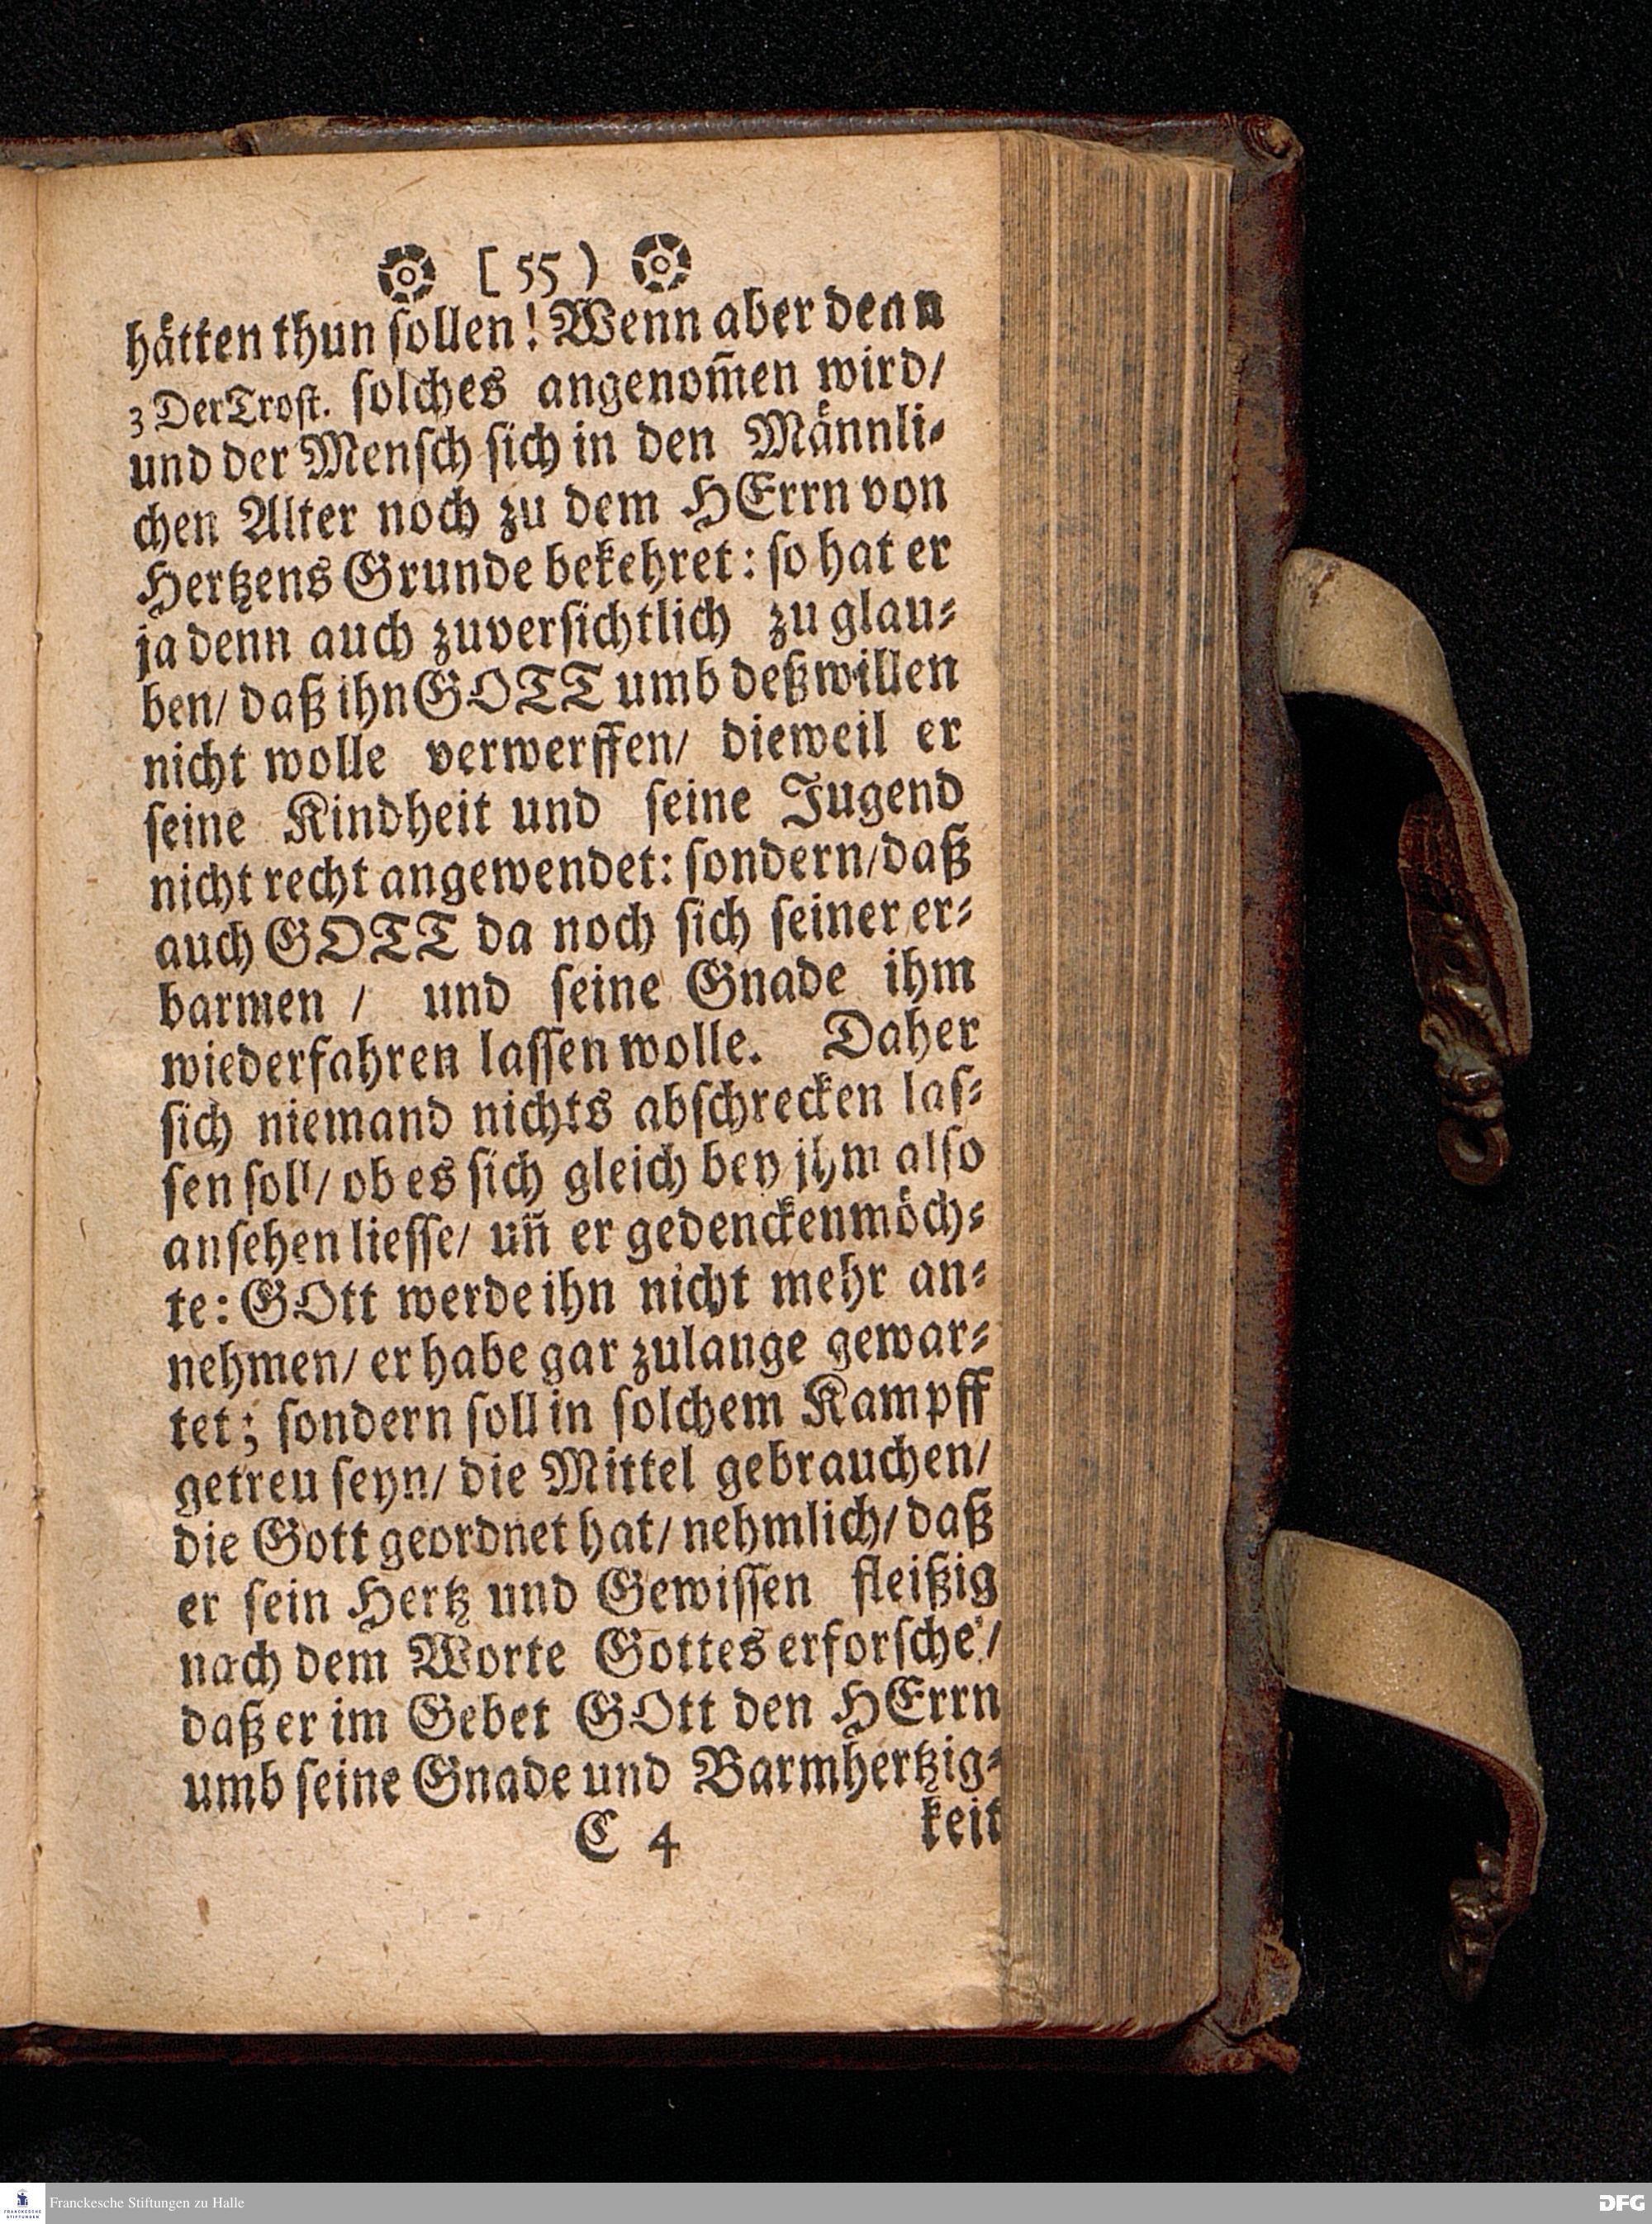 [ 55 )
hätten thun sollen! Wenn aber denn
3 Der Trost. solches angenom̃en wird/
und der Mensch sich in den Männli-
chen Alter noch zu dem HErrn von
Hertzens Grunde bekehret: so hat er
ja denn auch zuversichtlich zu glau-
ben/ daß ihn GOTT umb deßwillen
nicht wolle verwerffen/ dieweil er
seine Kindheit und seine Jugend
nicht recht angewendet: sondern/daß
auch GOTT da noch sich seiner er-
barmen / und seine Gnade ihm
wiederfahren lassen wolle. Daher
sich niemand nichts abschrecken las-
sen soll/ ob es sich gleich bey jhm also
ansehen liesse/ uñ er gedencken möch-
te: GOtt werde ihn nicht mehr an-
nehmen/ er habe gar zulange gewar-
tet; sondern soll in solchem Kampff
getreu seyn/ die Mittel gebrauchen/
die Gott geordnet hat/ nehmlich/ daß
er sein Hertz und Gewissen fleißig
nach dem Worte Gottes erforsche/
daß er im Gebet GOtt den HErrn
umb seine Gnade und Barmhertzig-
C 4 keit
Franckesche Stiftungen zu Halle
FRANCKESCHE STIFTUNGEN
DFG